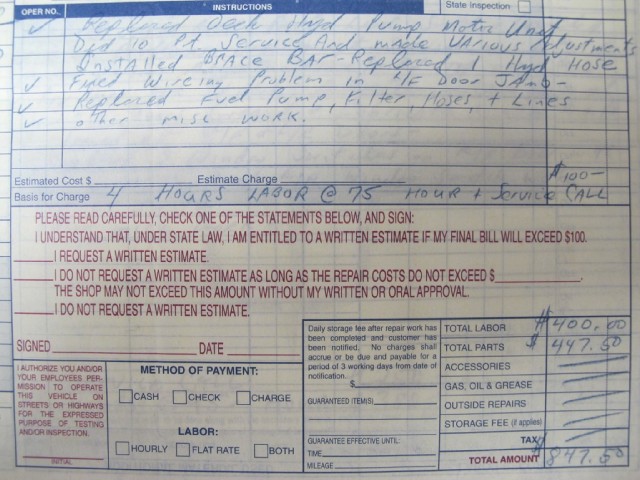 OPER NO. INSTRUCTIONS State Inspection
Replaced Deck Hyd Pump Motor Unit
Did 10 Pt. Service And made VARIOUS Adjustments
Installed BRACE BAR - Replaced 1 Hyd HOSE
Fixed Wireing Problem in L/F Door JAMB -
Replaced Fuel Pump, Filter, Hoses, + Lines
other misc WORK.
$100-
Estimated Cost $ Estimate Charge
Basis for Charge 4 HOURS LABOR @ 75 HOUR + Service CALL
PLEASE READ CAREFULLY, CHECK ONE OF THE STATEMENTS BELOW, AND SIGN:
I UNDERSTAND THAT, UNDER STATE LAW, I AM ENTITLED TO A WRITTEN ESTIMATE IF MY FINAL BILL WILL EXCEED $100.
I REQUEST A WRITTEN ESTIMATE.
I DO NOT REQUEST A WRITTEN ESTIMATE AS LONG AS THE REPAIR COSTS DO NOT EXCEED $ .
THE SHOP MAY NOT EXCEED THIS AMOUNT WITHOUT MY WRITTEN OR ORAL APPROVAL.
I DO NOT REQUEST A WRITTEN ESTIMATE.
SIGNED DATE
I AUTHORIZE YOU AND/OR
YOUR EMPLOYEES PER-
MISSION TO OPERATE
THIS VEHICLE ON
STREETS OR HIGHWAYS
FOR THE EXPRESSED
PURPOSE OF TESTING
AND/OR INSPECTION.
INITIAL
METHOD OF PAYMENT:
CASH CHECK CHARGE
LABOR:
HOURLY FLAT RATE BOTH
Daily storage fee after repair work has
been completed and customer has
been notified. No charges shall
accrue or be due and payable for a
period of 3 working days from date of
notification.
$
GUARANTEED ITEM(S)
GUARANTEE EFFECTIVE UNTIL:
TIME
MILEAGE
TOTAL LABOR $400.00
TOTAL PARTS $447.50
ACCESSORIES
GAS, OIL & GREASE
OUTSIDE REPAIRS
STORAGE FEE (if applies)
TAX
TOTAL AMOUNT $847.50